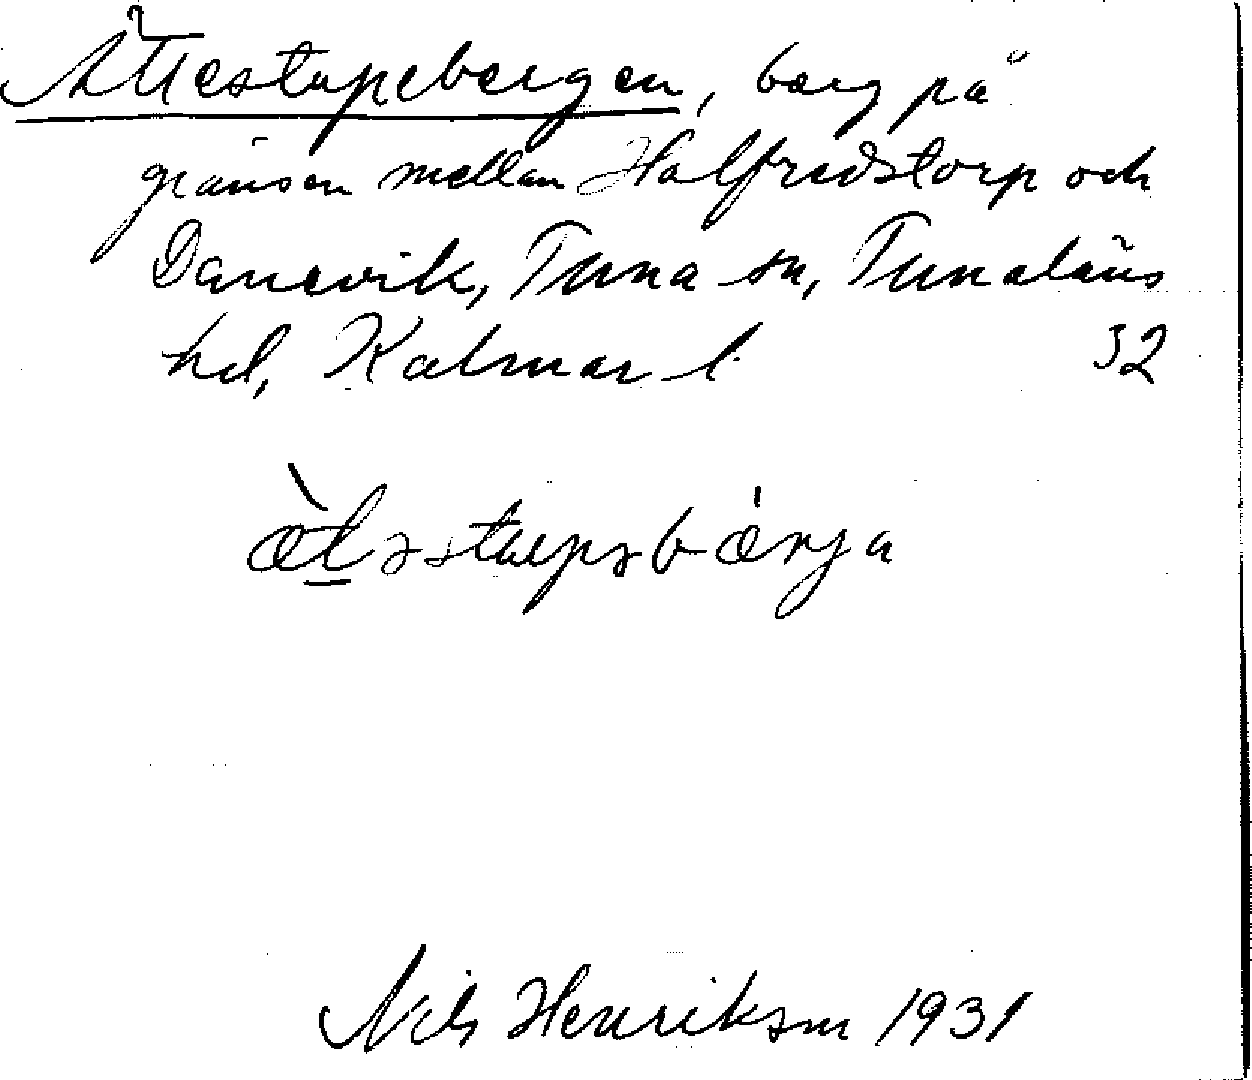 Ättestupebergen, berg på
gränsen mellan Halfredstorp och
Danevik, Tuna sn, Tunaläns
hd, Kalmar l. 32
æ̀təstupəbǽrja
Nils Henrikson 1931